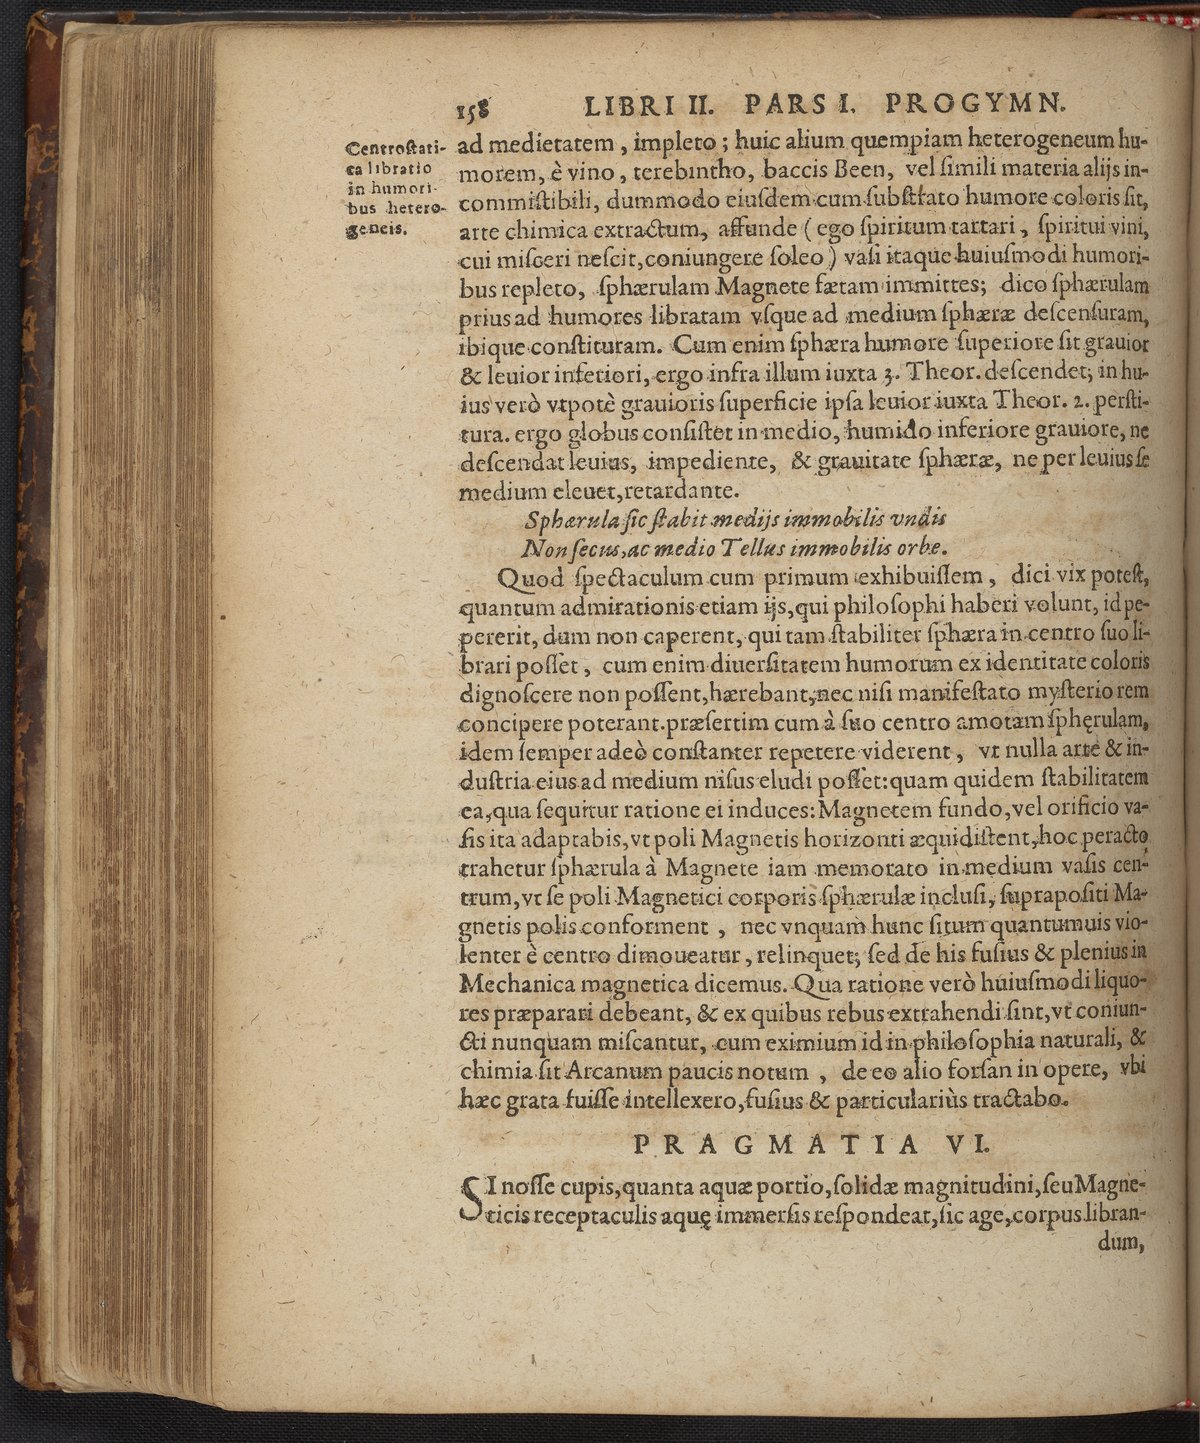 158 LIBRI II. PARS I. PROGYMN.
Centrostati-
ca libratio
in humori-
bus hetero-
geneis.
ad medietatem, impleto; huic alium quempiam heterogeneum hu-
morem, è vino, terebintho, baccis Been, vel ſimili materia alijs in-
commiſtibili, dummodo eiuſdem cum ſubſtrato humore coloris ſit,
arte chimica extractum, affunde (ego ſpiritum tartari, ſpiritui vini,
cui miſceri neſcit, coniungere ſoleo) vaſi itaque huiuſmodi humori-
bus repleto, ſphærulam Magnete fætam immittes; dico ſphærulam
prius ad humores libratam vſque ad medium ſphæræ deſcenſuram,
ibique conſtituram. Cum enim ſphæra humore ſuperiore ſit grauior
& leuior inferiori, ergo infra illum iuxta 3. Theor. deſcendet; in hu-
ius verò vtpotè grauioris ſuperficie ipſa leuior iuxta Theor. 2. perſti-
tura. ergo globus conſiſtet in medio, humido inferiore grauiore, ne
deſcendat leuius, impediente, & grauitate ſphæræ, ne per leuius ſe
medium eleuet, retardante.
Sphærula ſic ſtabit medijs immobilis vndis
Non ſecus, ac medio Tellus immobilis orbe.
Quod ſpectaculum cum primum exhibuiſſem, dici vix poteſt,
quantum admirationis etiam ijs, qui philoſophi haberi volunt, id pe-
pererit, dum non caperent, qui tam ſtabiliter ſphæra in centro ſuo li-
brari poſſet, cum enim diuerſitatem humorum ex identitate coloris
dignoſcere non poſſent, hærebant, nec niſi manifeſtato myſterio rem
concipere poterant. præſertim cum à ſuo centro amotam ſphęrulam,
idem ſemper adeò conſtanter repetere viderent, vt nulla arte & in-
duſtria eius ad medium niſus eludi poſſet: quam quidem ſtabilitatem
ea, qua ſequitur ratione ei induces: Magnetem fundo, vel orificio va-
ſis ita adaptabis, vt poli Magnetis horizonti æquidiſtent, hoc peracto
trahetur ſphærula à Magnete iam memorato in medium vaſis cen-
trum, vt ſe poli Magnetici corporis ſphærulæ incluſi, ſuprapoſiti Ma-
gnetis polis conforment, nec vnquam hunc ſitum quantumuis vio-
lenter è centro dimoueatur, relinquet; ſed de his fuſius & plenius in
Mechanica magnetica dicemus. Qua ratione verò huiuſmodi liquo-
res præparari debeant, & ex quibus rebus extrahendi ſint, vt coniun-
cti nunquam miſcantur, cum eximium id in philoſophia naturali, &
chimia ſit Arcanum paucis notum, de eo alio forſan in opere, vbi
hæc grata fuiſſe intellexero, fuſius & particulariùs tractabo.
PRAGMATIA VI.
SI noſſe cupis, quanta aquæ portio, ſolidæ magnitudini, ſeu Magne-
ticis receptaculis aquę immerſis reſpondeat, ſic age, corpus libran-
dum,